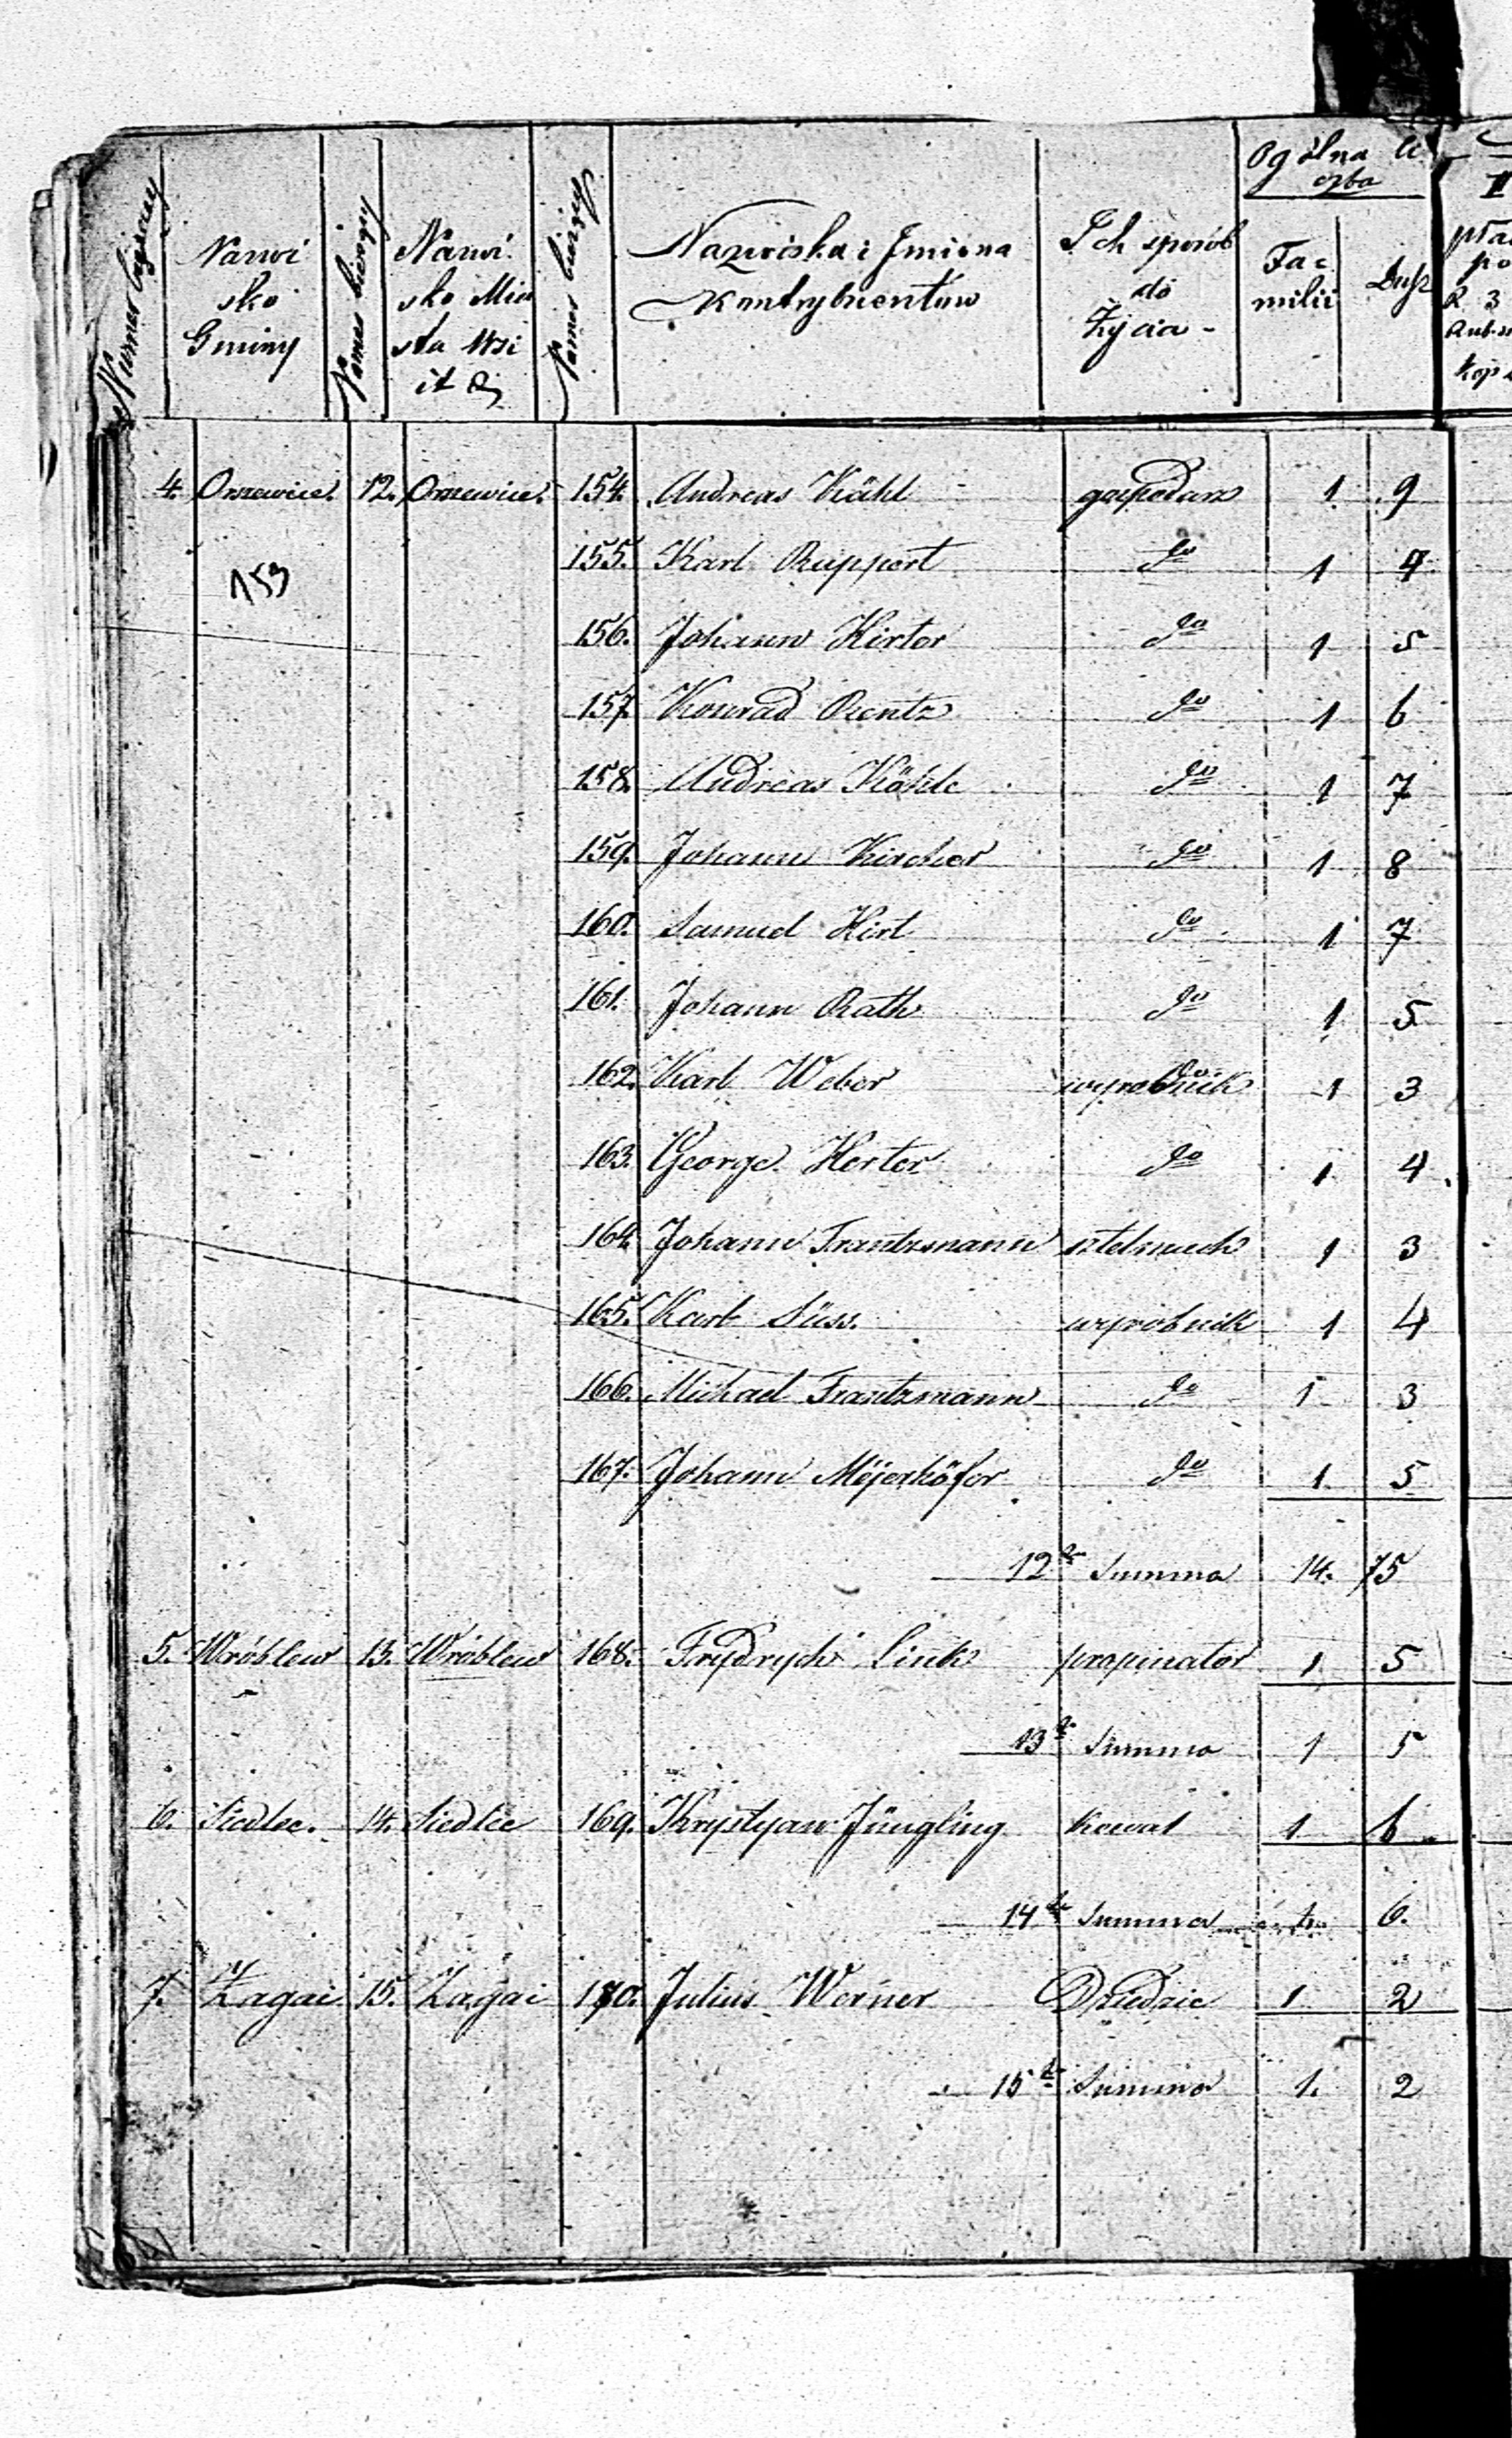 Numer bieżący | Nazwi sko Gminy | Numer bieżący | Nazwi sko Mia sta Wsi it d | Numer bieżący | Nazwiska i Jmiona Kontrybuentów | Ich sposób do Życia - | Ogólna li czba | Fa milii | Dusz
4. Orszewice. 12. Orszewice. 154. Andreas Kähl gospodarz 1 9
155. Karl Ruppert do 1 4
153
156. Johann Hirter do 1 5
157 Konrad Rentz do 1 6
158. Andreas Köhle do 1 7
159. Johann Kircher do 1 8
160. Samuel Hirt do 1 7
161. Johann Rath do 1 5
162. Karl Weber wyrobnik 1 3
163. George Herter do 1 4
164. Johann Frantzmann sztelmach 1 3
165. Karl Süss. wyrobnik 1 4
166. Michael Frantzmann do 1 3
167. Johann Mejerhöfer do 1 5
12a Summa 14. 75
5. Wróblew 13. Wróblew 168. Frydrych Link propinator 1 5
13a Summa 1 5
6. Siedlec. 14. Siedlec 169. Krystyan Jüngling Kowal 1 6
14a Summa 1 6.
7. Zagai 15. Zagai 170. Julius Werner Dziedzic 1 2
15a Summa 1. 2